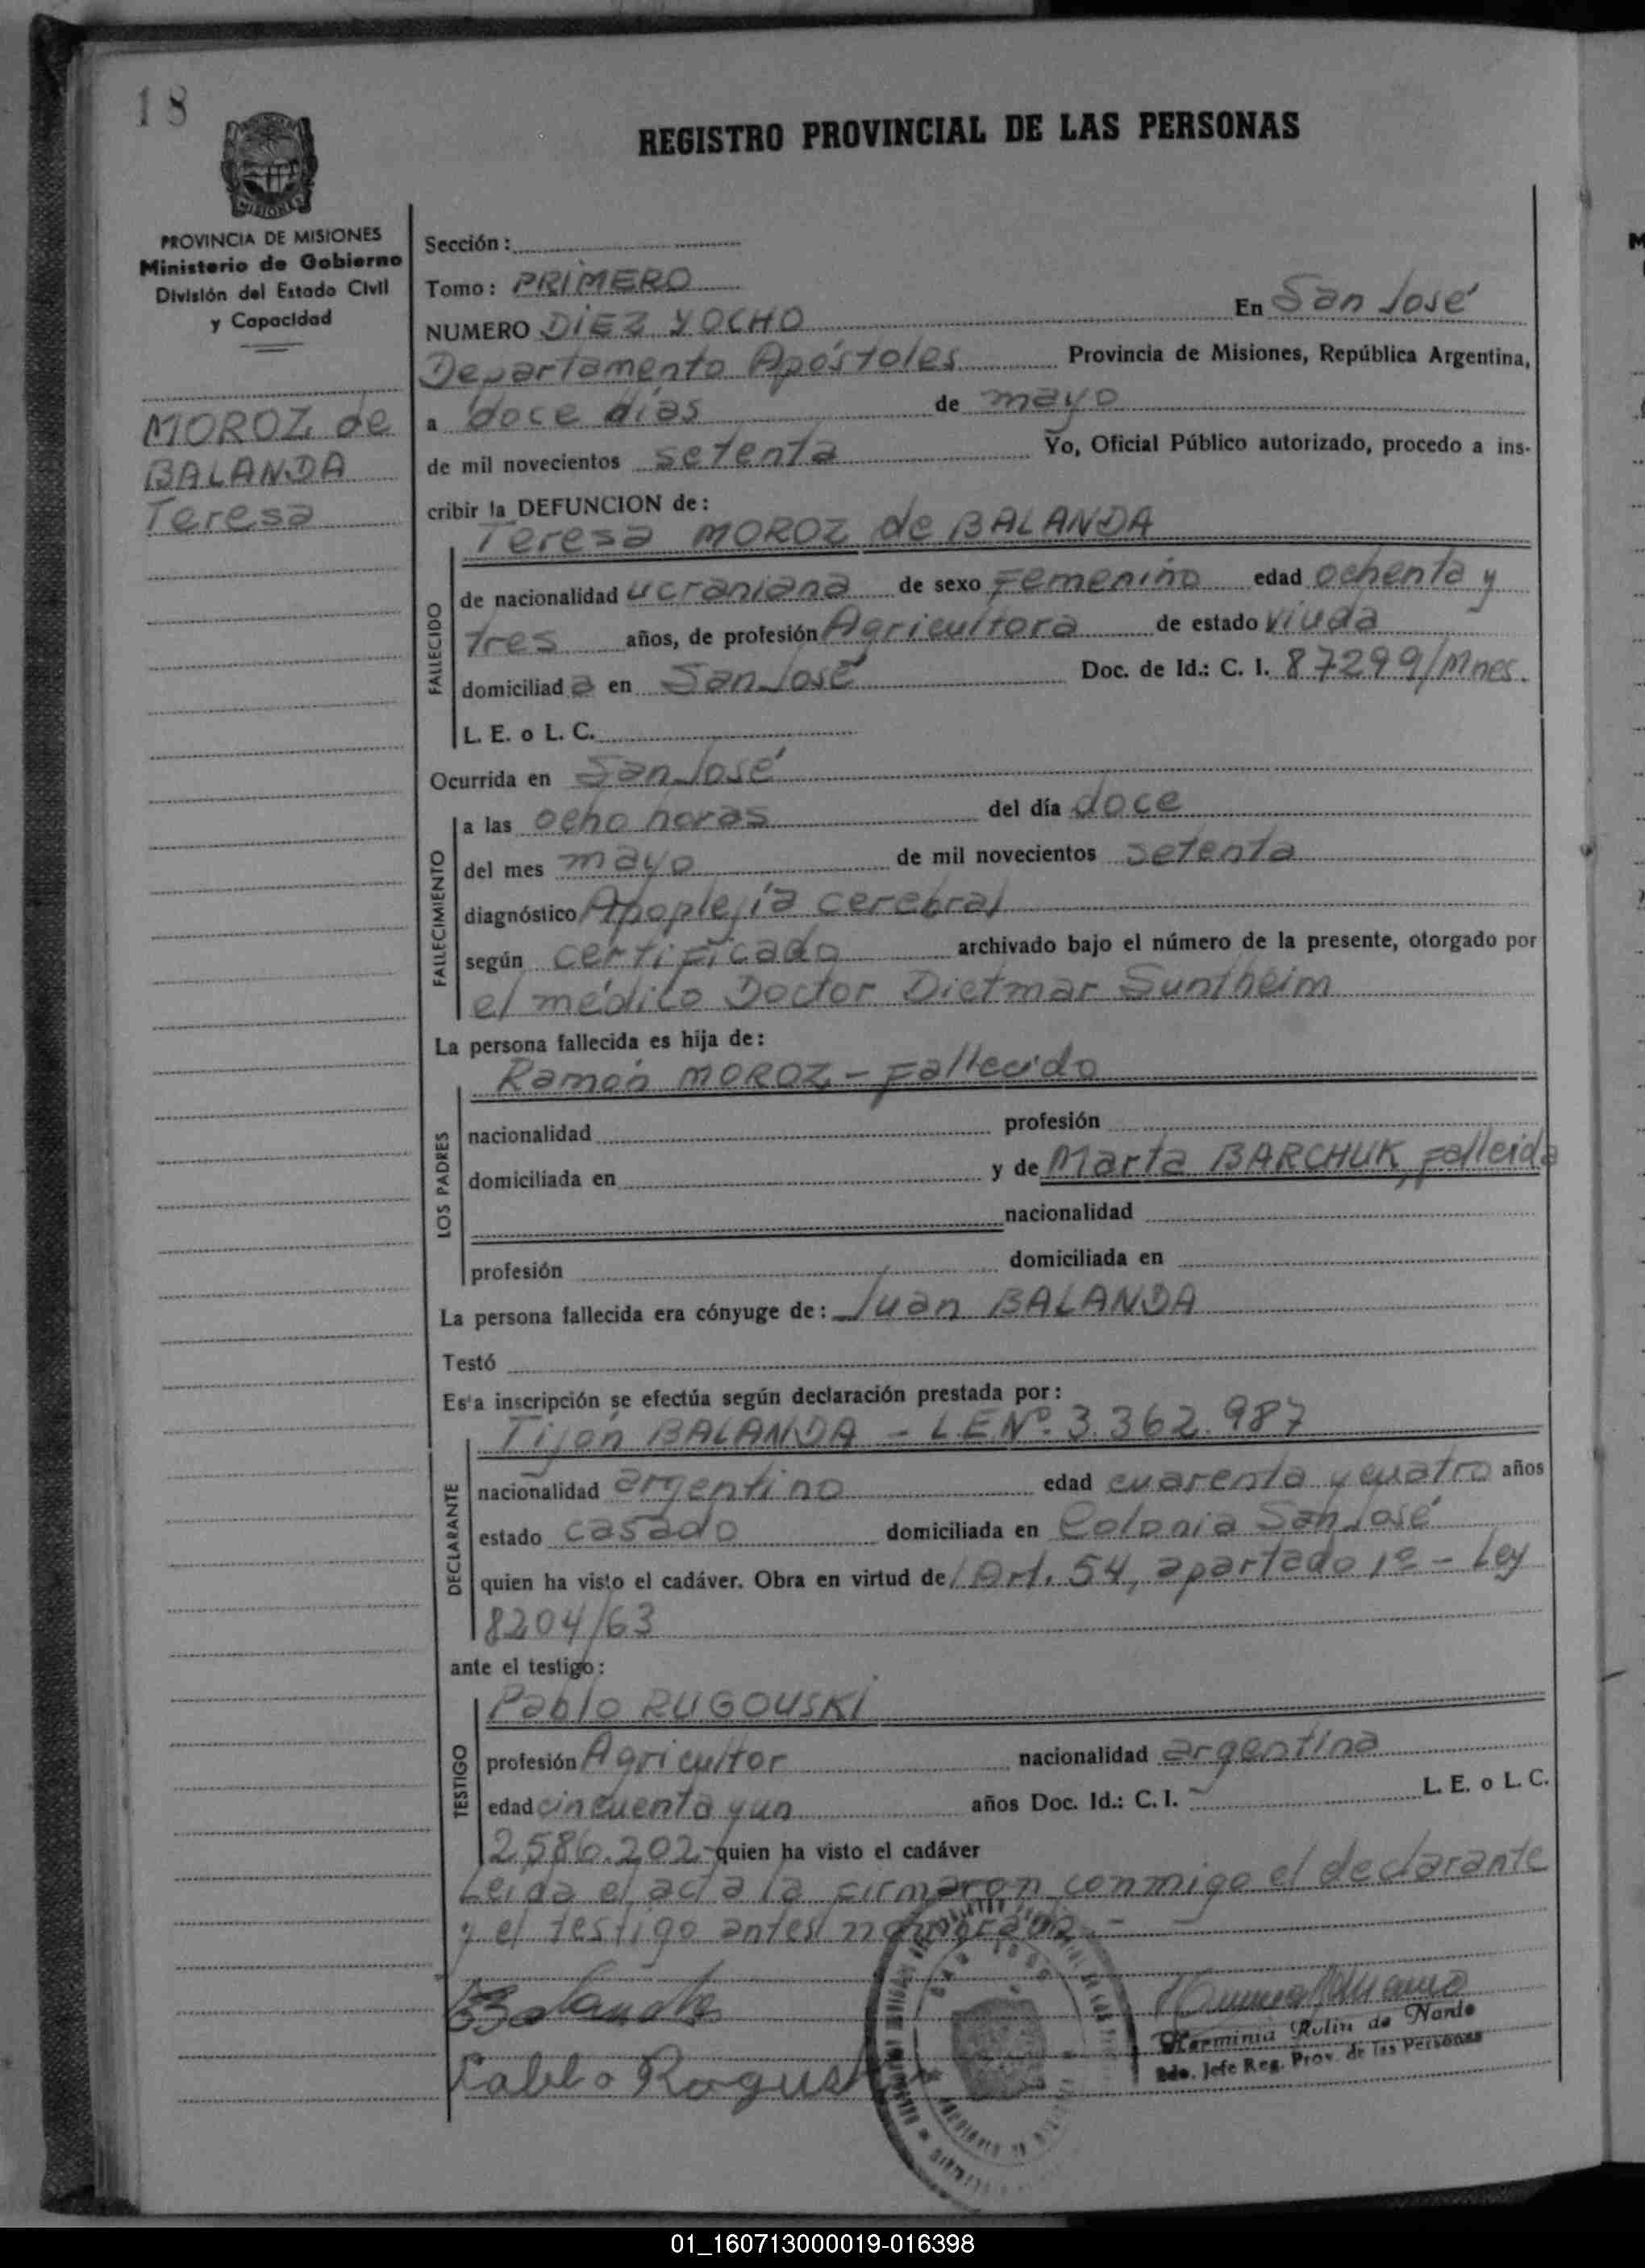 18
REGISTRO PROVINCIAL DE LAS PERSONAS
MISIONES
PROVINCIA DE MISIONES
Ministerio de Gobierno
División del Estado Civil
y Capacidad
MOROZ de
BALANDA
Teresa
Sección:
Tomo: PRIMERO
NUMERO DIEZ Y OCHO En San José
Departamento Apóstoles Provincia de Misiones, República Argentina,
a doce días de mayo
de mil novecientos setenta Yo, Oficial Público autorizado, procedo a ins-
cribir la DEFUNCION de:
Teresa MOROZ de BALANDA
FALLECIDO
de nacionalidad ucraniana de sexo Femenino edad ochenta y
tres años, de profesión Agricultora de estado viuda
domiciliad a en San José Doc. de Id.: C. I. 87299/Mnes.
L. E. o L. C.
Ocurrida en San José
FALLECIMIENTO
a las ocho horas del día doce
del mes mayo de mil novecientos setenta
diagnóstico Apoplejía cerebral
según certificado archivado bajo el número de la presente, otorgado por
el médico Doctor Dietmar Suntheim
La persona fallecida es hija de:
Ramón MOROZ - Fallecido
LOS PADRES
nacionalidad profesión
domiciliada en y de Marta BARCHUK, falleida
nacionalidad
profesión domiciliada en
La persona fallecida era cónyuge de: Juan BALANDA
Testó
Esta inscripción se efectúa según declaración prestada por:
Tijón BALANDA - L.E.Nº. 3.362.987
DECLARANTE
nacionalidad argentino edad cuarenta y cuatro años
estado casado domiciliada en Colonia San José
quien ha visto el cadáver. Obra en virtud de Art. 54, apartado 1º - Ley
8204/63
ante el testigo:
Pablo RUGOUSKI
TESTIGO
profesión Agricultor nacionalidad argentina
edad cincuenta y un años Doc. Id.: C. I. L. E. o L. C.
2.586.202 quien ha visto el cadáver
Leída el acta la firmaron conmigo el declarante
y el testigo antes nombrado.-
Balanda
Herminia Rolin de Nardo
2do. Jefe Reg. Prov. de las Personas
Pablo
01_160713000019-016398